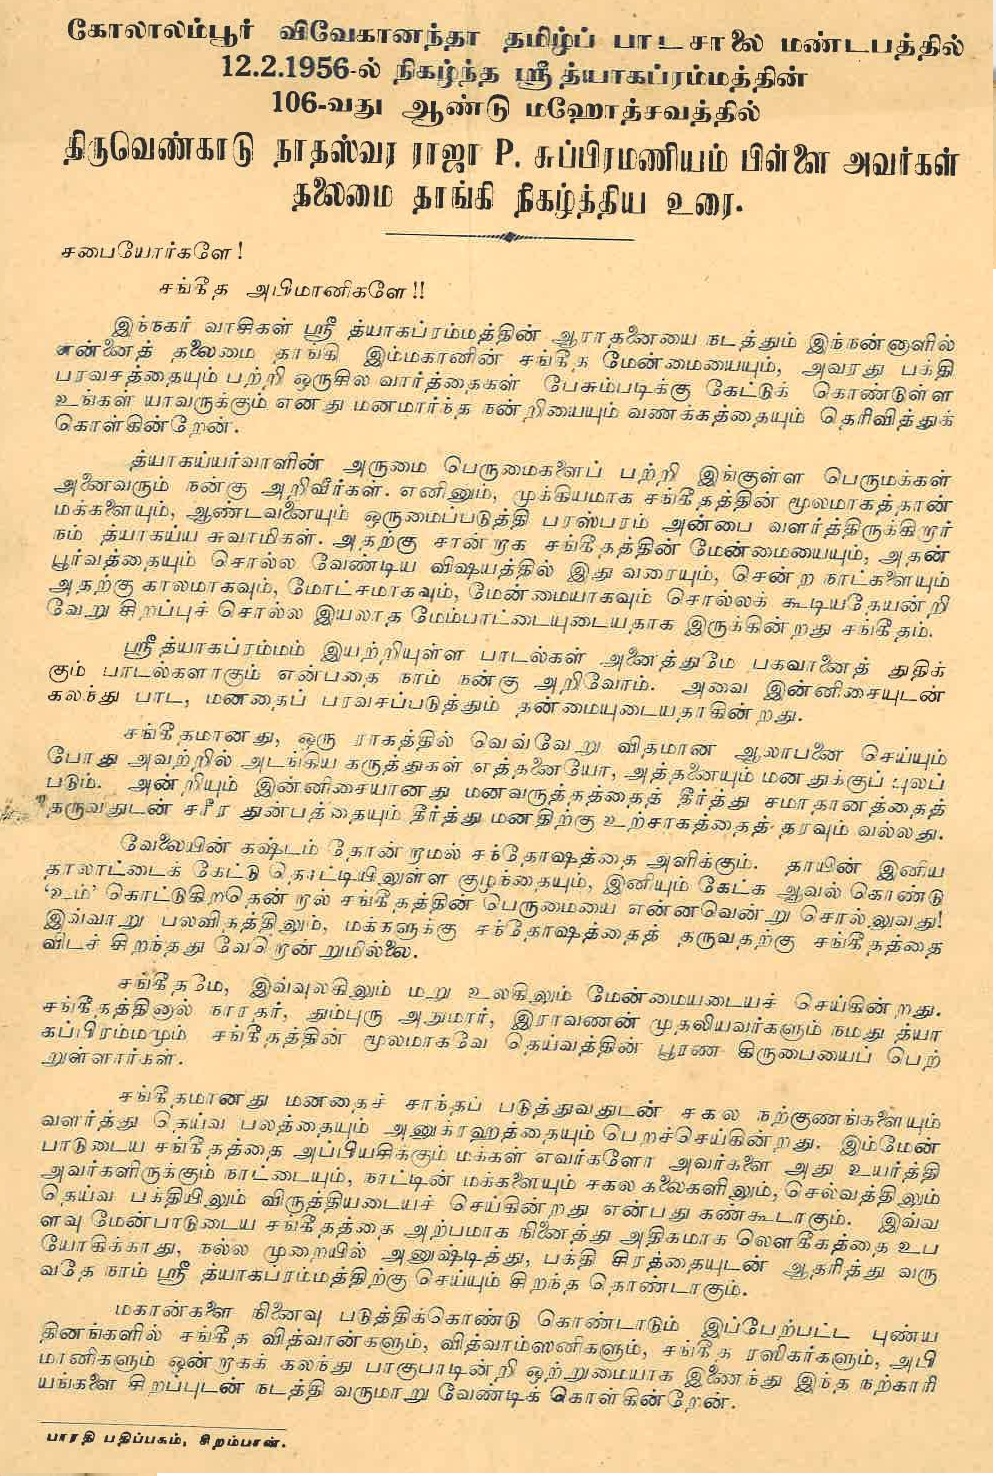 கோலாலம்பூர் விவேகானந்தா தமிழ்ப் பாடசாலை மண்டபத்தில்
12.2.1956-ல் நிகழ்ந்த ஸ்ரீ த்யாகப்ரம்மத்தின்
106-வது ஆண்டு மஹோத்சவத்தில்
திருவெண்காடு நாதஸ்வர ராஜா P. சுப்பிரமணியம் பிள்ளை அவர்கள்
தலைமை தாங்கி நிகழ்த்திய உரை.
சபையோர்களே!
சங்கீத அபிமானிகளே!!
இந்நகர் வாசிகள் ஸ்ரீ த்யாகப்ரம்மத்தின் ஆராதனையை நடத்தும் இந்நன்னாளில்
என்னைத் தலைமை தாங்கி இம்மகானின் சங்கீத மேன்மையையும், அவரது பக்தி
பரவசத்தையும் பற்றி ஒருசில வார்த்தைகள் பேசும்படிக்கு கேட்டுக் கொண்டுள்ள
உங்கள் யாவருக்கும் எனது மனமார்ந்த நன்றியையும் வணக்கத்தையும் தெரிவித்துக்
கொள்கின்றேன்.
த்யாகய்யர்வாளின் அருமை பெருமைகளைப் பற்றி இங்குள்ள பெருமக்கள்
அனைவரும் நன்கு அறிவீர்கள். எனினும், முக்கியமாக சங்கீதத்தின் மூலமாகத்தான்
மக்களையும், ஆண்டவனையும் ஒருமைப்படுத்தி பரஸ்பரம் அன்பை வளர்த்திருக்கிறார்
நம் த்யாகய்ய சுவாமிகள். அதற்கு சான்றாக சங்கீதத்தின் மேன்மையையும், அதன்
பூர்வத்தையும் சொல்ல வேண்டிய விஷயத்தில் இது வரையும், சென்ற நாட்களையும்
அதற்கு காலமாகவும், மோட்சமாகவும், மேன்மையாகவும் சொல்லக் கூடியதேயன்றி
வேறு சிறப்புச் சொல்ல இயலாத மேம்பாட்டையுடையதாக இருக்கின்றது சங்கீதம்.
ஸ்ரீத்யாகப்ரம்மம் இயற்றியுள்ள பாடல்கள் அனைத்துமே பகவானைத் துதிக்
கும் பாடல்களாகும் என்பதை நாம் நன்கு அறிவோம். அவை இன்னிசையுடன்
கலந்து பாட, மனதைப் பரவசப்படுத்தும் தன்மையுடையதாகின்றது.
சங்கீதமானது, ஒரு ராகத்தில் வெவ்வேறு விதமான ஆலாபனை செய்யும்
போது அவற்றில் அடங்கிய கருத்துகள் எத்தனையோ, அத்தனையும் மனதுக்குப் புலப்
படும். அன்றியும் இன்னிசையானது மனவருத்தத்தைத் தீர்த்து சமாதானத்தைத்
தருவதுடன் சரீர துன்பத்தையும் தீர்த்து மனதிற்கு உற்சாகத்தைத் தரவும் வல்லது.
வேலையின் கஷ்டம் தோன்றாமல் சந்தோஷத்தை அளிக்கும். தாயின் இனிய
தாலாட்டைக் கேட்டு தொட்டியிலுள்ள குழந்தையும், இனியும் கேட்க ஆவல் கொண்டு
‘உம்’ கொட்டுகிறதென்றால் சங்கீதத்தின் பெருமையை என்னவென்று சொல்லுவது!
இவ்வாறு பலவிதத்திலும், மக்களுக்கு சந்தோஷத்தைத் தருவதற்கு சங்கீதத்தை
விடச் சிறந்தது வேறொன்றுமில்லை.
சங்கீதமே, இவ்வுலகிலும் மறு உலகிலும் மேன்மையடையச் செய்கின்றது.
சங்கீதத்தினால் நாரதர், தும்புரு அனுமார், இராவணன் முதலியவர்களும் நமது த்யா
கப்பிரம்மமும் சங்கீதத்தின் மூலமாகவே தெய்வத்தின் பூரண கிருபையைப் பெற்
றுள்ளார்கள்.
சங்கீதமானது மனதைச் சாந்தப் படுத்துவதுடன் சகல நற்குணங்களையும்
வளர்த்து தெய்வ பலத்தையும் அனுக்ரஹத்தையும் பெறச்செய்கின்றது. இம்மேன்
பாடுடைய சங்கீதத்தை அப்பியசிக்கும் மக்கள் எவர்களோ அவர்களை அது உயர்த்தி
அவர்களிருக்கும் நாட்டையும், நாட்டின் மக்களையும் சகல கலைகளிலும், செல்வத்திலும்
தெய்வ பக்தியிலும் விருத்தியடையச் செய்கின்றது என்பது கண்கூடாகும். இவ்வ
ளவு மேன்பாடுடைய சங்கீதத்தை அற்பமாக நினைத்து அதிகமாக லௌகீகத்தை உப
யோகிக்காது, நல்ல முறையில் அனுஷ்டித்து, பக்தி சிரத்தையுடன் ஆதரித்து வரு
வதே நாம் ஸ்ரீ த்யாகப்ரம்மத்திற்கு செய்யும் சிறந்த தொண்டாகும்.
மகான்களை நினைவு படுத்திக்கொண்டு கொண்டாடும் இப்பேற்பட்ட புண்ய
தினங்களில் சங்கீத வித்வான்களும், வித்வாம்ஸனிகளும், சங்கீத ரஸிகர்களும், அபி
மானிகளும் ஒன்றாகக் கலந்து பாகுபாடின்றி ஒற்றுமையாக இணைந்து இந்த நற்காரி
யங்களை சிறப்புடன் நடத்தி வருமாறு வேண்டிக் கொள்கின்றேன்.
பாரதி பதிப்பகம், சிறம்பான்.